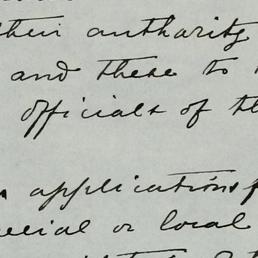 their authority
and these to
officials of th
applications f
ecial or local